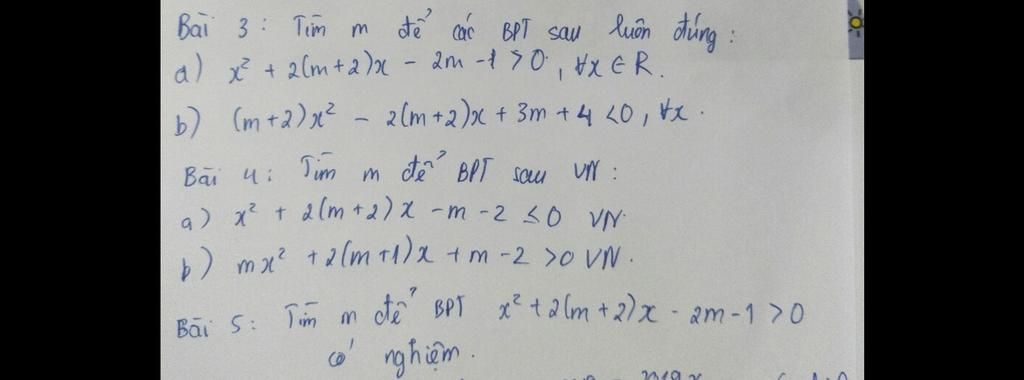 Bài 3: Tìm m để các BPT sau luôn đúng:
a) x² + 2(m+2)x - 2m -1 > 0, ∀x ∈ R.
b) (m+2)x² - 2(m+2)x + 3m + 4 < 0, ∀x.
Bài 4: Tìm m để BPT sau VN:
a) x² + 2(m+2)x - m - 2 ≤ 0 VN.
b) mx² + 2(m+1)x + m - 2 > 0 VN.
Bài 5: Tìm m để BPT x² + 2(m+2)x - 2m - 1 > 0
có nghiệm.